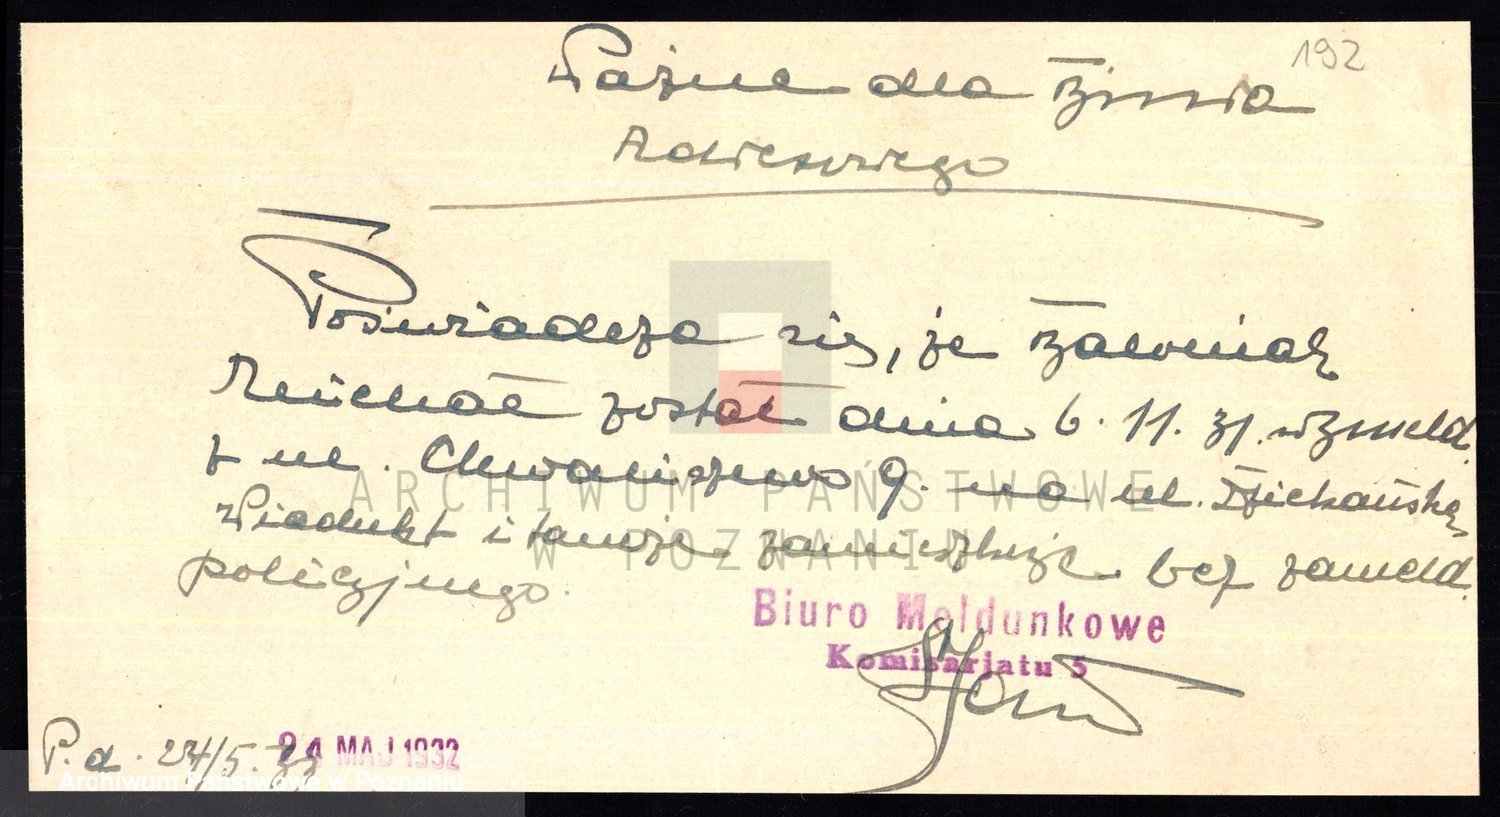 192
Ważne dla Biura
Adresowego
Poświadcza się, że
Michał został dnia 6. 11. 31. wymeld.
z ul. Chwaliszewo 9. na ul.
Wiadukt i tamże zamieszkuje bez zameld.
policyjnego.
Biuro Meldunkowe
Komisarjatu 5
P. d. 24/5. 32
24 MAJ 1932
ARCHIWUM PAŃSTWOWE
W POZNANIU
Archiwum Państwowe w Poznaniu